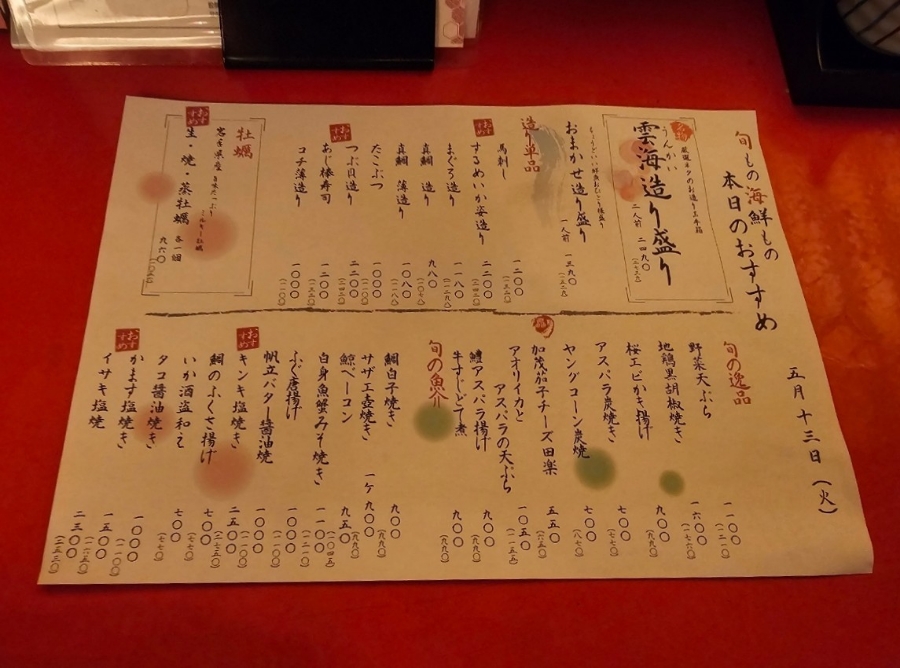 旬もの海鮮もの
本日のおすすめ
五月十三日(火)
名物
厳選ネタのお造り玉手箱
うんかい
雲海造り盛り
二人前 二四九〇
おまかせ造り盛り
一人前 一三九〇
造り単品
馬刺し 一二〇〇
おすすめ
するめいか姿造り 二二〇〇
まぐろ造り 一一八〇
真鯛 造り 九八〇
真鯛 薄造り 一〇八〇
たこぶつ 一〇〇〇
おすすめ
つぶ貝造り 二二〇〇
あじ棒寿司 一二〇〇
コチ薄造り 一〇〇〇
牡蠣
おすすめ
生・焼・蒸牡蠣
各一個
九六〇
旬の逸品
野菜天ぷら 一一〇〇
地鶏黒胡椒焼き 一六〇〇
桜エビかき揚げ 九〇〇
アスパラ炭焼き 七〇〇
ヤングコーン炭焼 七〇〇
加茂茄子チーズ田楽 五五〇
アオリイカと
アスパラの天ぷら 一〇五〇
鱧アスパラ揚げ 九〇〇
牛すじどて煮 九〇〇
旬の魚介
鯛白子焼き 九〇〇
サザエ壺焼き 一ヶ 九〇〇
鯨ベーコン 九五〇
白身魚蟹みそ焼き 一一〇〇
ふぐ唐揚げ 一〇〇〇
帆立バター醤油焼 一〇〇〇
おすすめ
キンキ塩焼き 二五〇〇
鯛のふくさ揚げ 七〇〇
いか酒盗和え 七〇〇
タコ醤油焼き 一〇〇〇
おすすめ
かます塩焼き 一五〇〇
イサキ塩焼 二三〇〇